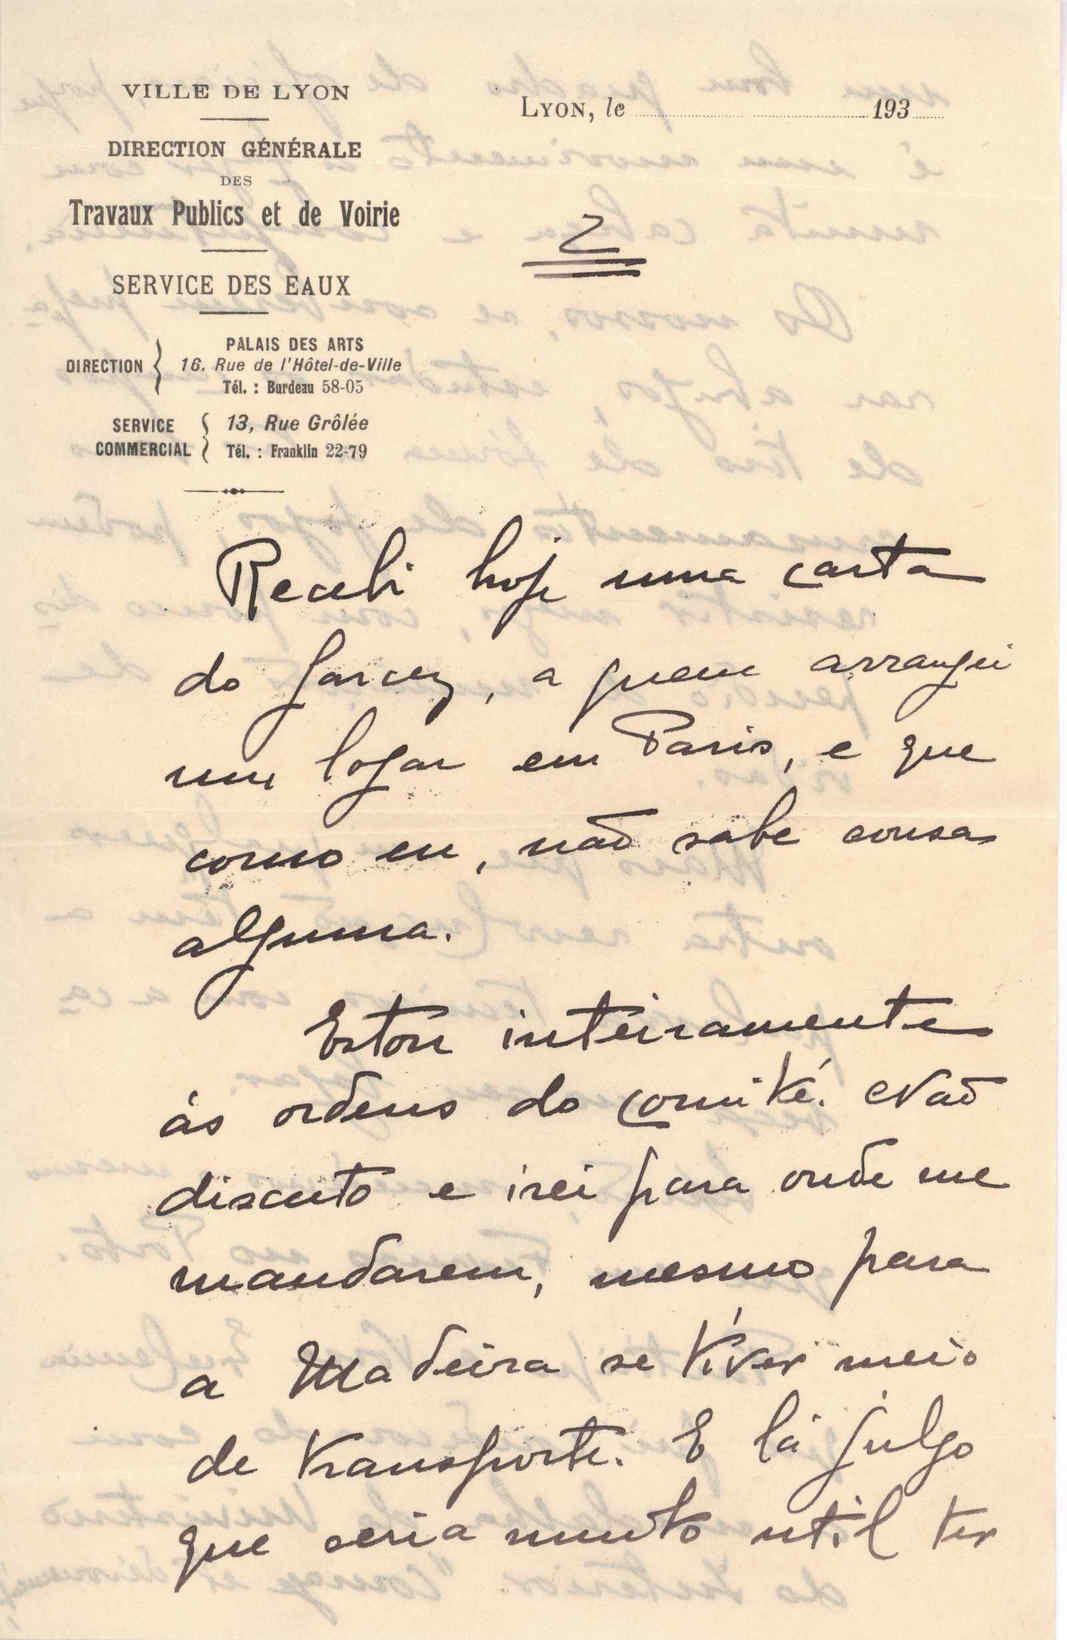 VILLE DE LYON
DIRECTION GÉNÉRALE
DES
Travaux Publics et de Voirie
SERVICE DES EAUX
DIRECTION { PALAIS DES ARTS
16, Rue de l'Hôtel-de-Ville
Tél. : Burdeau 58-05
SERVICE COMMERCIAL { 13, Rue Grôlée
Tél. : Franklin 22-79
LYON, le 193
2
Recebi hoje uma carta
do Garcez, a quem arrangei
um logar em Paris, e que
como eu, não sabe cousa
alguma.
Estou inteiramente
ás ordens do comité. Não
discuto e irei para onde me
mandarem, mesmo para
a Madeira se tiver meio
de transporte. E lá julgo
que seria muito util ter